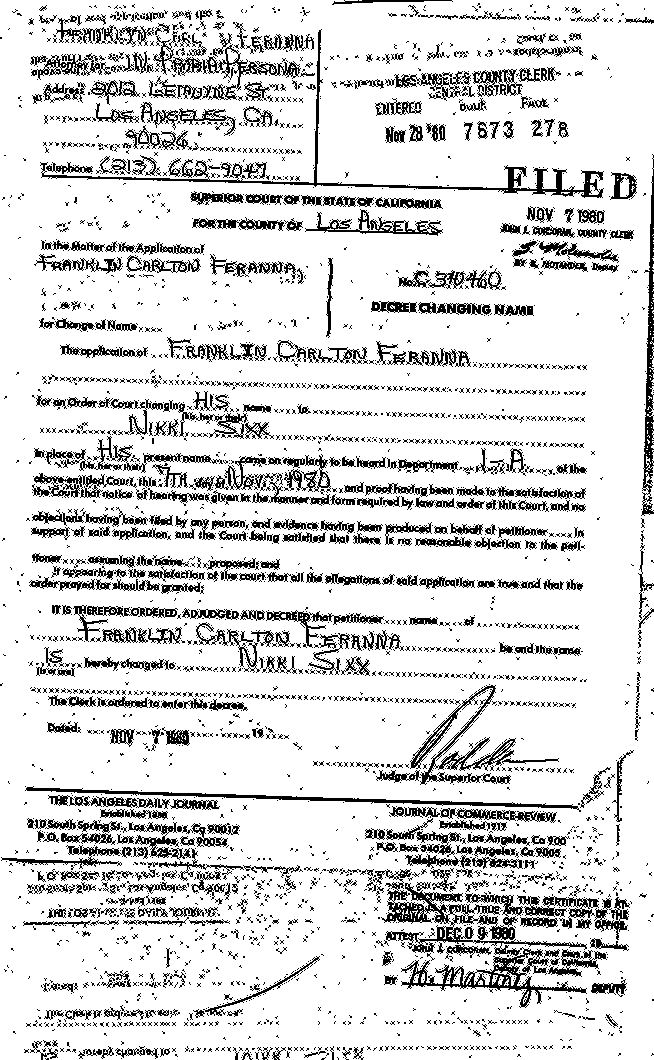 FRANKLIN CARL FERANNA
Attorney for IN PROPRIA PERSONA
Address
LOS ANGELES, CA.
90026
Telephone (213) 662-9047
LOS ANGELES COUNTY CLERK
CENTRAL DISTRICT
ENTERED BOOK PAGE
Nov 28 '80 7673 278
FILED
NOV 7 1980
JOHN J. CORCORAN, COUNTY CLERK
DEPUTY
SUPERIOR COURT OF THE STATE OF CALIFORNIA
FOR THE COUNTY OF LOS ANGELES
In the Matter of the Application of
FRANKLIN CARLTON FERANNA,
No. C 310460
DECREE CHANGING NAME
for Change of Name
The application of FRANKLIN CARLTON FERANNA
for an Order of Court changing HIS name to
(his, her or their)
NIKKI SIXX
in place of HIS present name came on regularly to be heard in Department 1-A of the
(his, her or their)
above-entitled Court, this 7TH day Nov. 1980, and proof having been made to the satisfaction of
the Court that notice of hearing was given in the manner and form required by law and order of this Court, and no
objections having been filed by any person, and evidence having been produced on behalf of petitioner in
support of said application, and the Court being satisfied that there is no reasonable objection to the peti-
tioner assuming the name proposed; and
It appearing to the satisfaction of the court that all the allegations of said application are true and that the
order prayed for should be granted;
IT IS THEREFORE ORDERED, ADJUDGED AND DECREED that petitioner name of
FRANKLIN CARLTON FERANNA be and the same
IS hereby changed to NIKKI SIXX
(is or are)
The Clerk is ordered to enter this decree.
Dated: NOV 7 1980 19
Judge of the Superior Court
THE LOS ANGELES DAILY JOURNAL
Established 1888
210 South Spring St., Los Angeles, Ca 90012
P.O. Box 54026, Los Angeles, Ca 90054
Telephone (213) 625-2141
JOURNAL OF COMMERCE REVIEW
Established 1917
210 South Spring St., Los Angeles, Ca 900
P.O. Box 54026, Los Angeles, Ca 9005
Telephone (213) 625-2111
THE DOCUMENT TO WHICH THIS CERTIFICATE IS AT-
TACHED IS A FULL, TRUE AND CORRECT COPY OF THE
ORIGINAL ON FILE AND OF RECORD IN MY OFFICE.
ATTEST DEC 09 1980 19
JOHN J. CORCORAN, County Clerk and Clerk of the
Superior Court of California,
County of Los Angeles.
BY DEPUTY
hereby changed to NIKKI SIXX